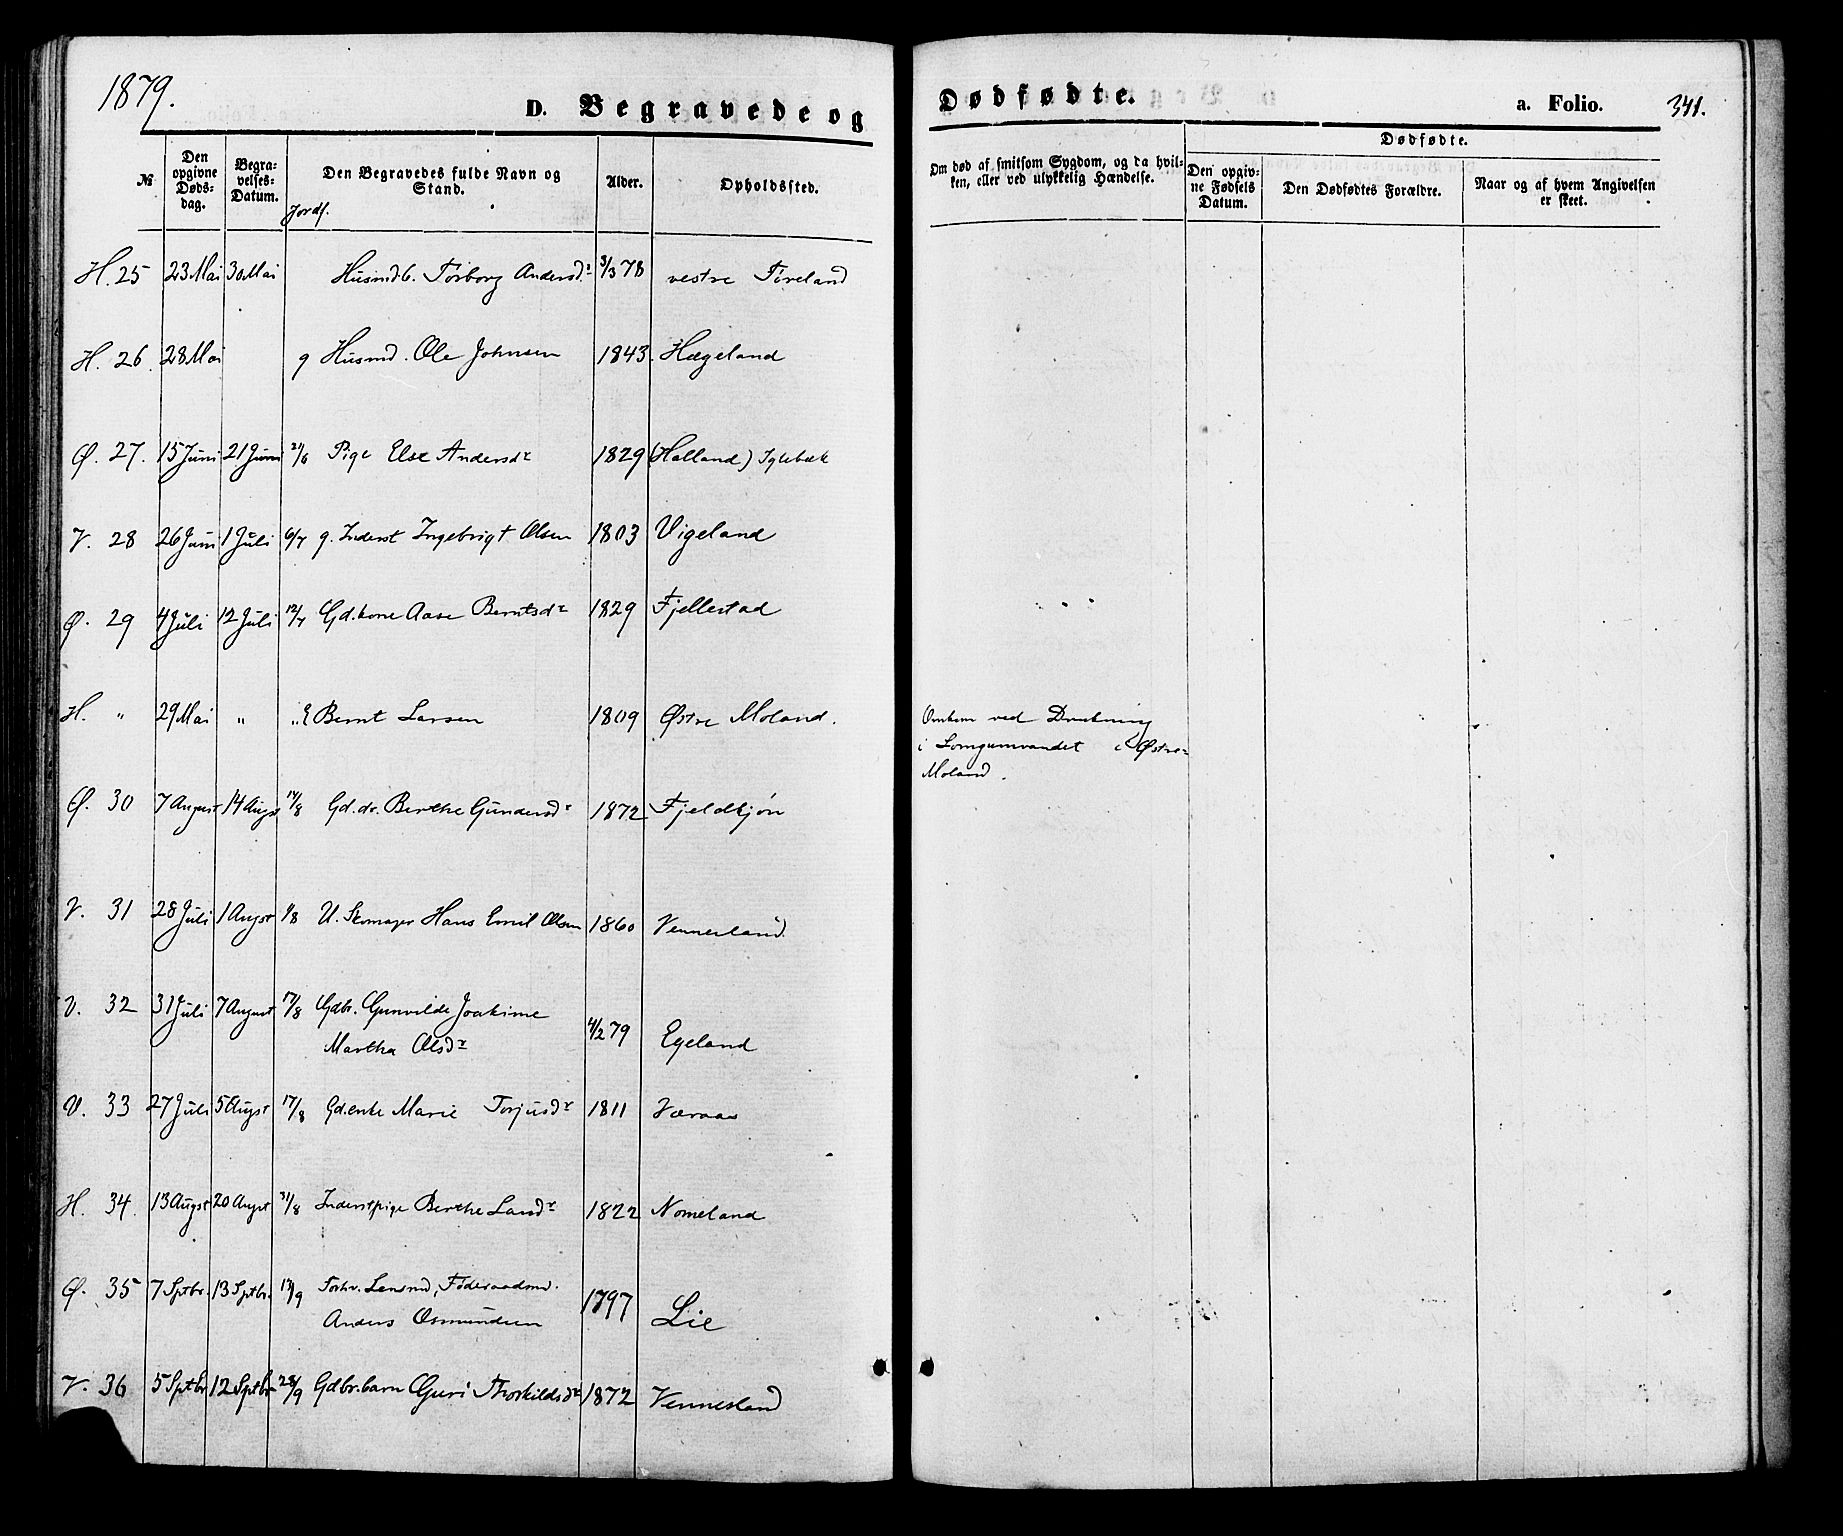 1879.
D. Begravede og Dødfødte. a. Folio. 341.
№ Den opgivne Døds-dag. Begra-velses-Datum. Jordf. Den Begravedes fulde Navn og Stand. Alder. Opholdssted. Om død af smitsom Sygdom, og da hvil-ken, eller ved ulykkelig Hændelse. Dødfødte. Den opgiv-ne Fødsels Datum. Den Dødfødtes Forældre. Naar og af hvem Angivelsen er skeet.
H. 25 23 Mai 30 Mai Husmdb. Tørborg Andersdr 3/3 78 vestre Føreland
H. 26. 28 Mai g Husmd. Ole Johnsen 1843. Hægeland
Ø. 27. 15 Juni 21 Juni 21/6 Pige Else Andersdr 1829 (Halland) Iglebæk
V. 28 26 Juni 1 Juli 6/7 g. Inderst Ingebrigt Olsen 1803 Vigeland
Ø. 29 4 Juli 12 Juli 12/7 Gd.kone Aase Berntsdr 1829 Fjellestad
H. " 29 Mai " " Bernt Larsen 1809 Østre Moland. Omkom ved Drukning
i Østre-
Moland.
Ø. 30 7 August 14 Augst 14/8 Gd.dr. Berthe Gundersdr 1872 Fjeldkjøn
V. 31 28 Juli 1 Augst 1/8 U. Skomager Hans Emil Olsen 1860 Vennesland.
V. 32 31 Juli 7 August 17/8 Gdbr. Gunvilde Joakime
Martha Olsdr 4/2 79 Egeland
V. 33 27 Juli 5 Augst 17/8 Gd.enke Marie Torjusdr 1811 Væraas
H. 34. 13 Augst 20 Augst 31/8 Inderstpige Berthe Larsdr 1822 Nomeland
Ø. 35 7 Sptbr. 13 Sptbr. 13/9 Forhv. Lensmd, Føderaadsmd.
Anders Osmundsen 1797 Lie
V. 36 5 Sptbr 12 Sptbr 28/9 Gdbr.barn Guri Thorkildsdr 1872 Vennesland